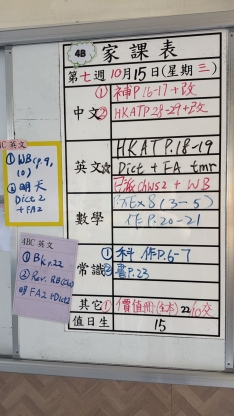 4B 家課表
第七週 10月15日(星期三)
中文 ① 補P.16-17+改
② HKAT P.28-29+改
英文 HKAT P.18-19
Dict + FA tmr
已派 Ch WS2 + WB
數學 作Ex8(3-5)
作P.20-21
常識 ① 科作P.6-7
② 書P.23
其它 ① 價值冊(全本) 22/10交
值日生 15
BC 英文
① WB(p.9,
10)
② 明天
Dict 2
+ FA2
4BC 英文
① BK p.22
② Rev. RB
明 FA2 + Dict2